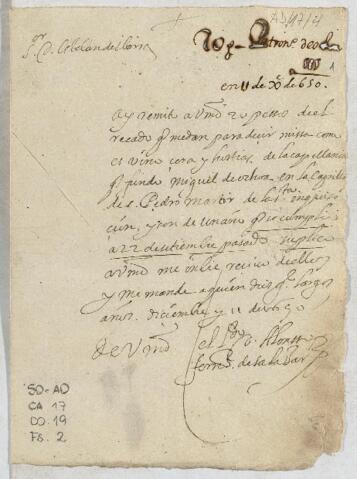 AD/17/4
Sor D.
1
en 11 de Xe de 650
Ay remito a Vmd 20 pesos de el
recado q me dan para decir missa como
es vino cera y hostias, de la capellania
q fundo Miguel de en la Capilla
de S. Pedro Martir de la sta inquisi
cion, y son de un año q se cumplio
a 22 de setiembre pasado suplico
a Vmd me enbie recivo de ellos
y me mande a quien Dios ge largos
años. diciembre y 11 de 650
de Vmd
el Ldo Alonso
ferrz de la Bar
SD-AD
CA 17
DO. 19
Fs. 2